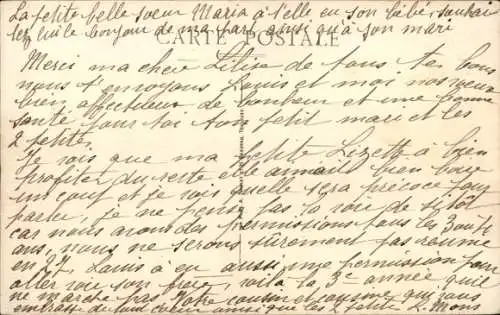 La petite belle soeur Maria à t'elle eu son bébé, souhai
tez lui le bonjour de ma part ainsi qu'à son mari
CARTE POSTALE
Merci ma chère Lilise de tous tes bons
nous t'envoyons Louis et moi nos voeux
bien affectueux de bonheur et une bonne
santé pour toi ton petit mari et les
2 petites.
Je vois que ma petite Lizette à bien
profiter du reste elle aimait bien boire
un coup et je vois quelle sera précoce pour
parler, je ne pense pas la voir de sitôt
car nous avons des permissions tous les 3 ou 4
ans, nous ne serons sûrement pas
en 27. Louis à eu aussi une permission pour
aller voir son frère, voilà la 3e année qu'il
ne marche pas Votre cousin et cousine qui vous
embrasse de tout coeur ainsi que les 2 petites L. Mons